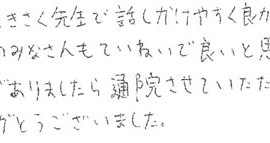 きさく先生で話しかけやすく良か
のみなさんもていねいで良いと思
がありましたら通院させていただ
がとうございました。